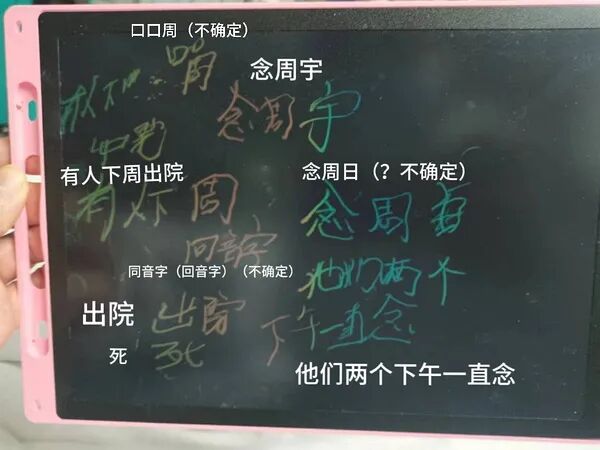 口口周（不确定）
念周宇
念周宇
有人下周出院
念周日（？不确定）
有人下周
念周
回音字
同音字（回音字）（不确定）
他们两个
出院
出院
下午一直念
死
死
他们两个下午一直念